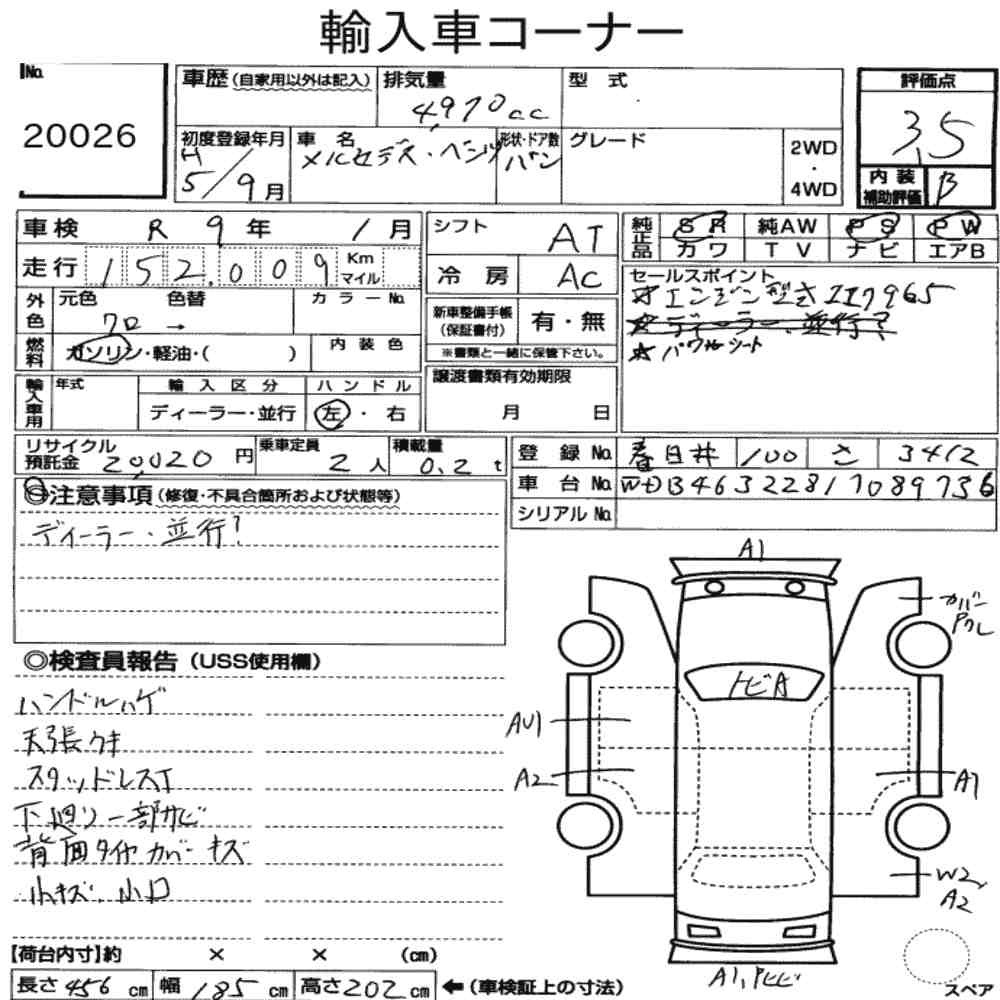 輸入車コーナー
No. 20026
車歴 (自家用以外は記入)
排気量 4,970cc
型式
評価点 3.5
初度登録年月 H5/9月
車名 メルセデス・ベンツ
形状・ドア数 バン
グレード
2WD・4WD
内装補助評価 B
車検 R 9年 1月
走行 152,009 Km マイル
外色 元色 クロ → 色替
カラーNo.
燃料 ガソリン・軽油・( )
内装色
輸入車用 年式
輸入区分 ディーラー・並行
ハンドル 左・右
シフト AT
冷房 AC
新車整備手帳(保証書付) 有・無
※書類と一緒に保管下さい。
譲渡書類有効期限
月 日
純正品 SR 純AW PS PW
カワ TV ナビ エアB
セールスポイント
☆エンジン型式 117965
☆ディーラー・並行?
☆パワーシート
リサイクル預託金 20,020円
乗車定員 2人
積載量 0.2t
登録No. 春日井 100 さ 3412
車台No. WDB46322817089736
シリアルNo.
◎注意事項 (修復・不具合箇所および状態等)
ディーラー・並行?
◎検査員報告 (USS使用欄)
ハンドルハゲ
天張ウキ
スタッドレスT
下廻り一部サビ
背面タイヤカバーキズ
小キズ、小凹
A1
カバー
トビA
AU1
A2
A1
W2,
A2
スペア
【荷台内寸】約 × × (cm)
長さ 456 cm 幅 185 cm 高さ 202 cm ←(車検証上の寸法)